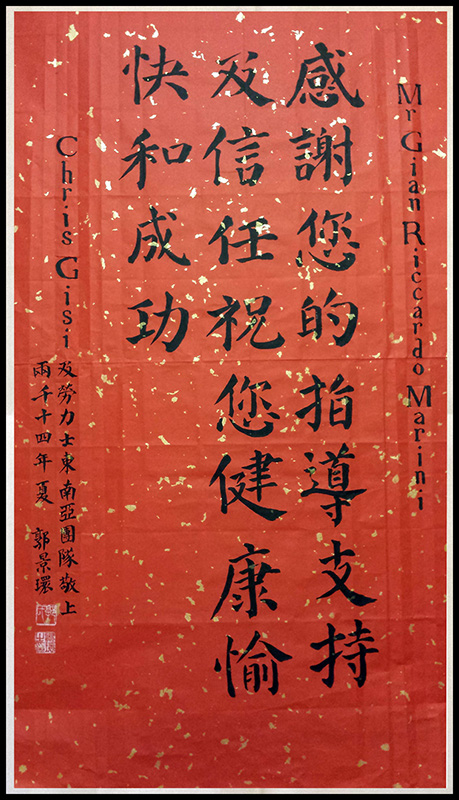 Mr Gian Riccardo Marini
感謝您的指導支持
及信任祝您健康愉
快和成功
Chris Gisi
及勞力士東南亞團隊敬上
兩千十四年夏 郭景環